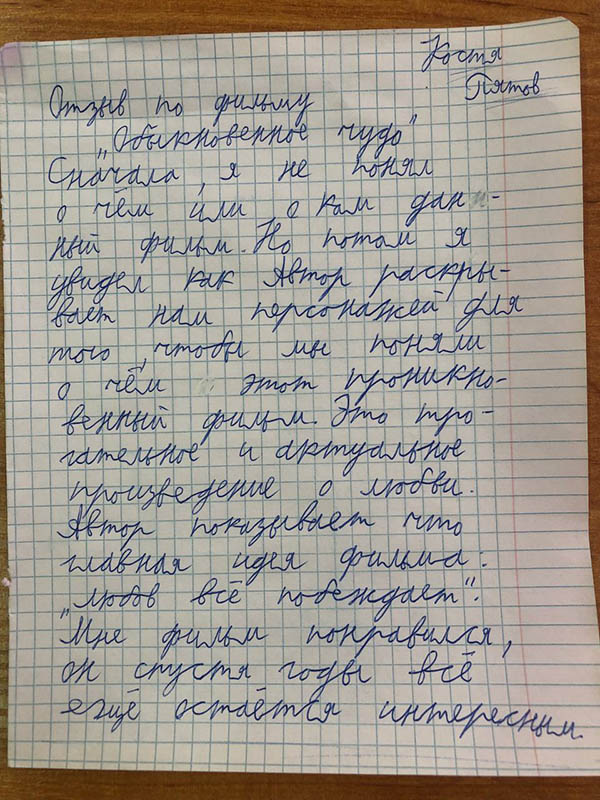 Костя
Пятов
Отзыв по фильму
„Обыкновенное чудо"
Сначала, я не понял
о чём или о ком дан-
ный фильм. Но потом я
увидел как Автор раскры-
вает нам персонажей для
того, чтобы мы поняли
о чём этот проникно-
венный фильм. Это тро-
гательное и актуальное
произведение о любви.
Автор показывает что
главная идея фильма:
„Любов всё побеждает".
Мне фильм понравился,
он спустя годы всё
ещё остаётся интересным.